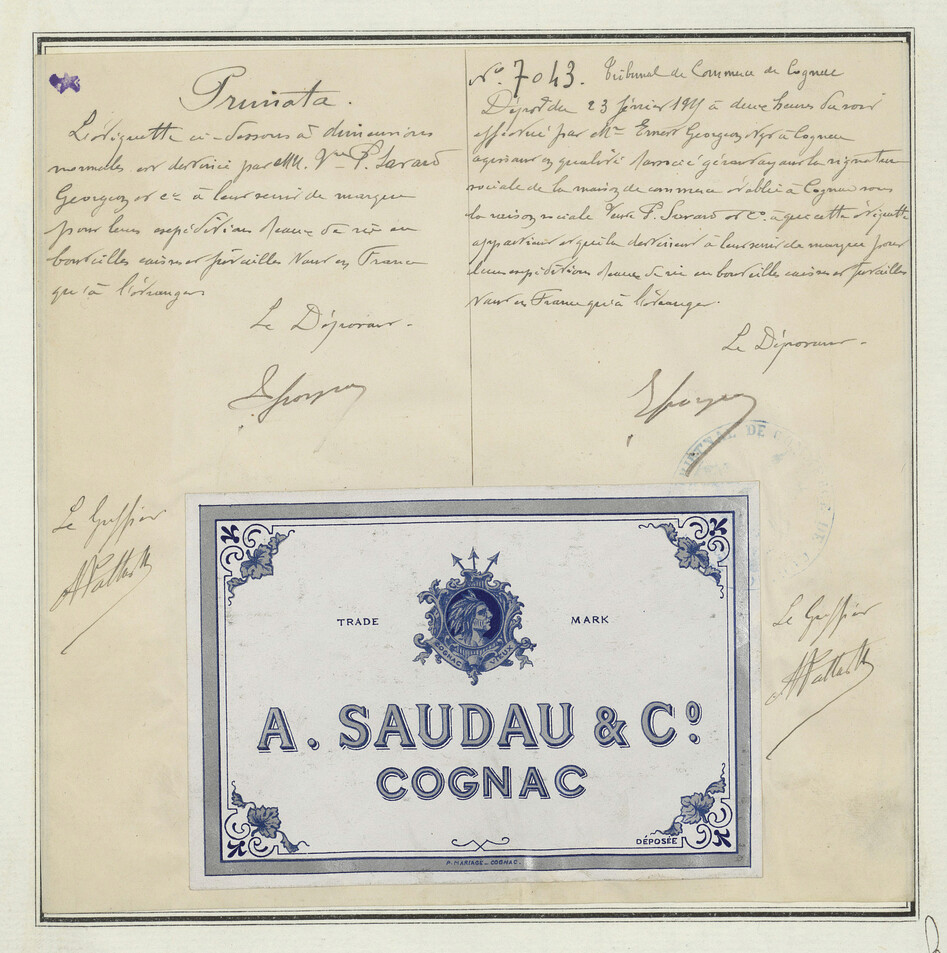 Primata.
L'étiquette ci-dessous à dimensions
normales est destinée par MM. Vve P. Savard
Georgeon et Cie à leur servir de marque
pour leurs expéditions d'eaux de vie en
bouteilles caisses et futailles tant en France
qu'à l'étranger
Le Déposant.
Le Greffier
No. 7043. Tribunal de Commerce de Cognac
Dépôt du 23 février 1911 à deux heures du soir
effectué par Mr Ernest Georgeon Ngt à Cognac
agissant en qualité d'associé gérant ayant la signature
sociale de la maison de commerce établie à Cognac sous
la raison sociale Veuve P. Savard et Co. à qui cette étiquette
appartient et qui la destinent à leur servir de marque pour
leurs expéditions d'eaux de vie en bouteilles caisses et futailles
tant en France qu'à l'étranger.
Le Déposant.
TRIBUNAL DE COMMERCE DE
Le Greffier
TRADE MARK
COGNAC VIEUX
A. SAUDAU & Co.
COGNAC
DÉPOSÉE
P. MARIAGE - COGNAC.